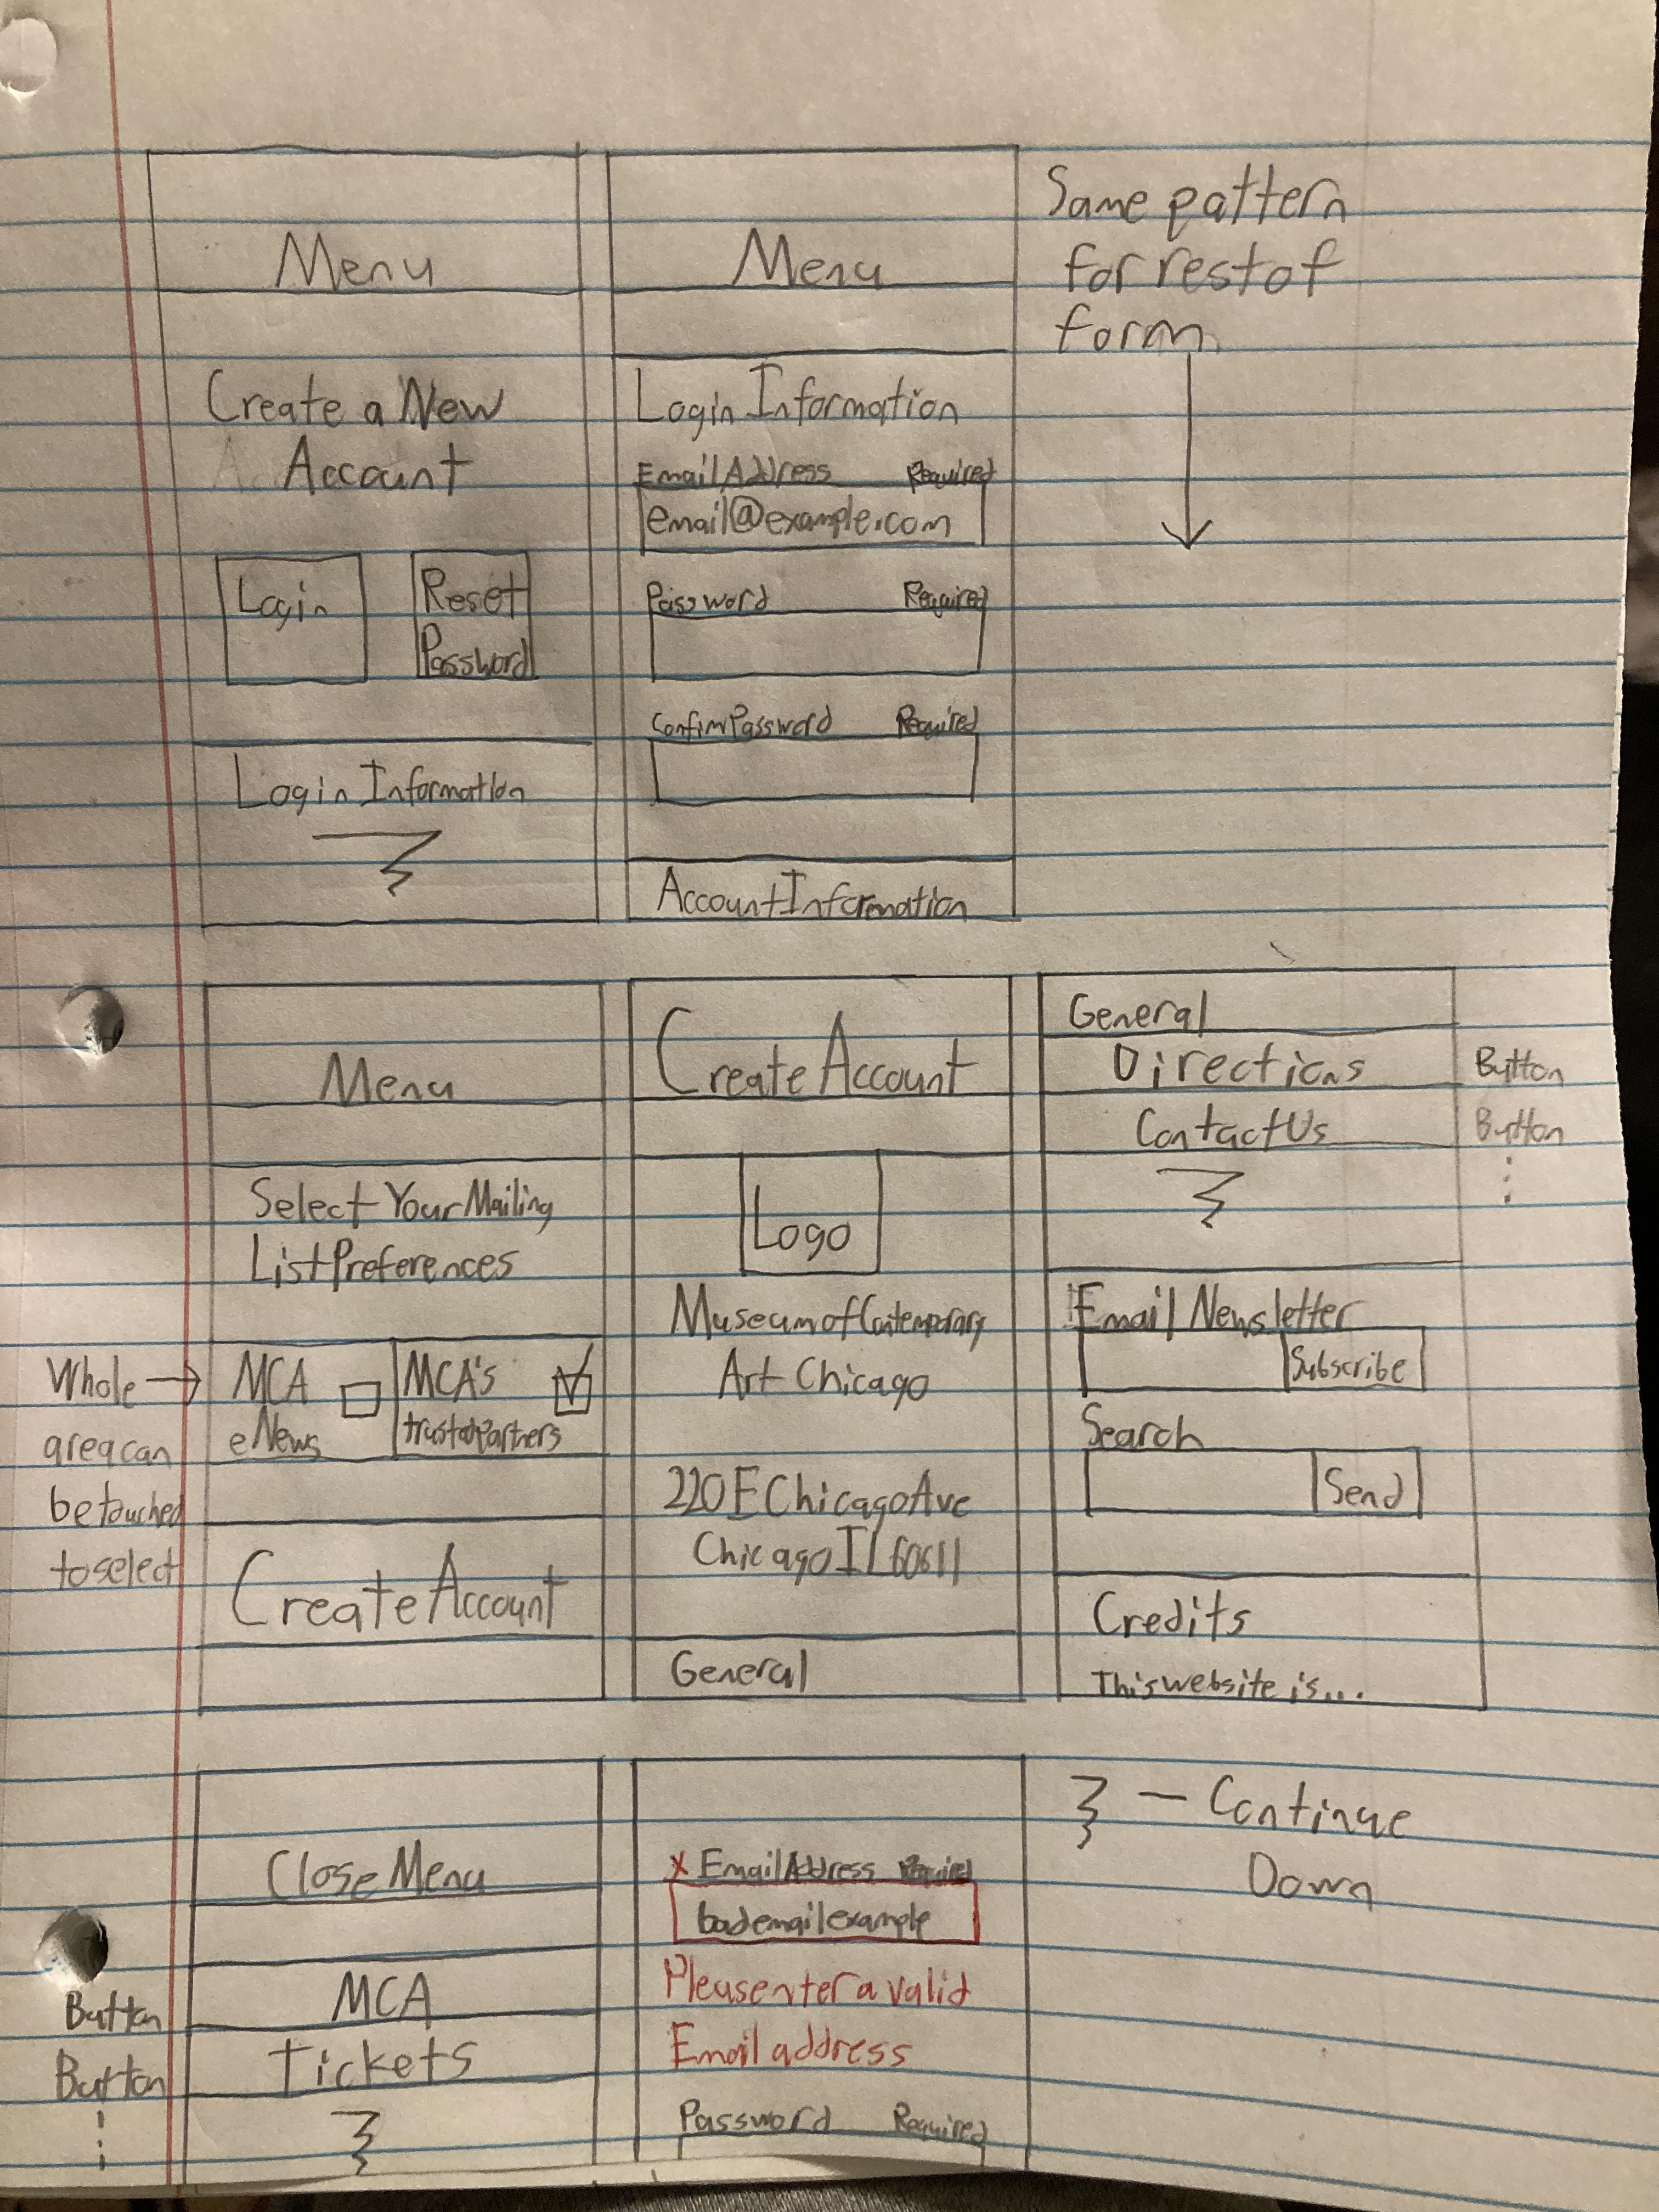 Menu
Create a New
Account
Login
Reset
Password
Login Information
Menu
Login Information
Email Address Required
email@example.com
Password Required
Confirm Password Required
Account Information
Same pattern
for rest of
form
Menu
Select Your Mailing
List Preferences
MCA
eNews
MCA's
trusted partners
Create Account
Whole
area can
be touched
to select
Create Account
Logo
Museum of Contemporary
Art Chicago
220 E Chicago Ave
Chicago IL 60611
General
General
Directions
Contact Us
Button
Button
Email Newsletter
Subscribe
Search
Send
Credits
This website is...
Close Menu
MCA
Tickets
Button
Button
x Email Address Required
bademailexample
Pleasenter a valid
Email address
Password Required
— Continue
Down